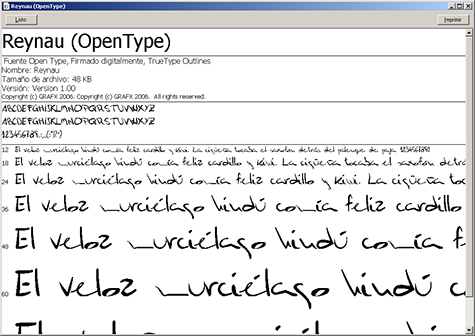 Reynau (OpenType)
Listo
Imprimir
Reynau (OpenType)
Fuente Open Type, Firmado digitalmente, TrueType Outlines
Nombre: Reynau
Tamaño de archivo: 48 KB
Versión: Version 1.00
Copyright (c) GRAFX 2006. Copyright (c) GRAFX 2006. All rights reserved.
ABCDEFGHIJKLMNOPQRSTUVWXYZ
ABCDEFGHIJKLMNOPQRSTUVWXYZ
12 El veloz murciélago hindú comía feliz cardillo y kiwi. La cigüeña tocaba el saxofón detrás del palenque de paja. 1234567890
18 El veloz murciélago hindú comía feliz cardillo y kiwi. La cigüeña tocaba el saxofón detrá
24 El veloz murciélago hindú comía feliz cardillo y kiwi. La cigüeña toca
36 El veloz murciélago hindú comía feliz cardillo
48 El veloz murciélago hindú comía f
60 El veloz murciélago hindú c